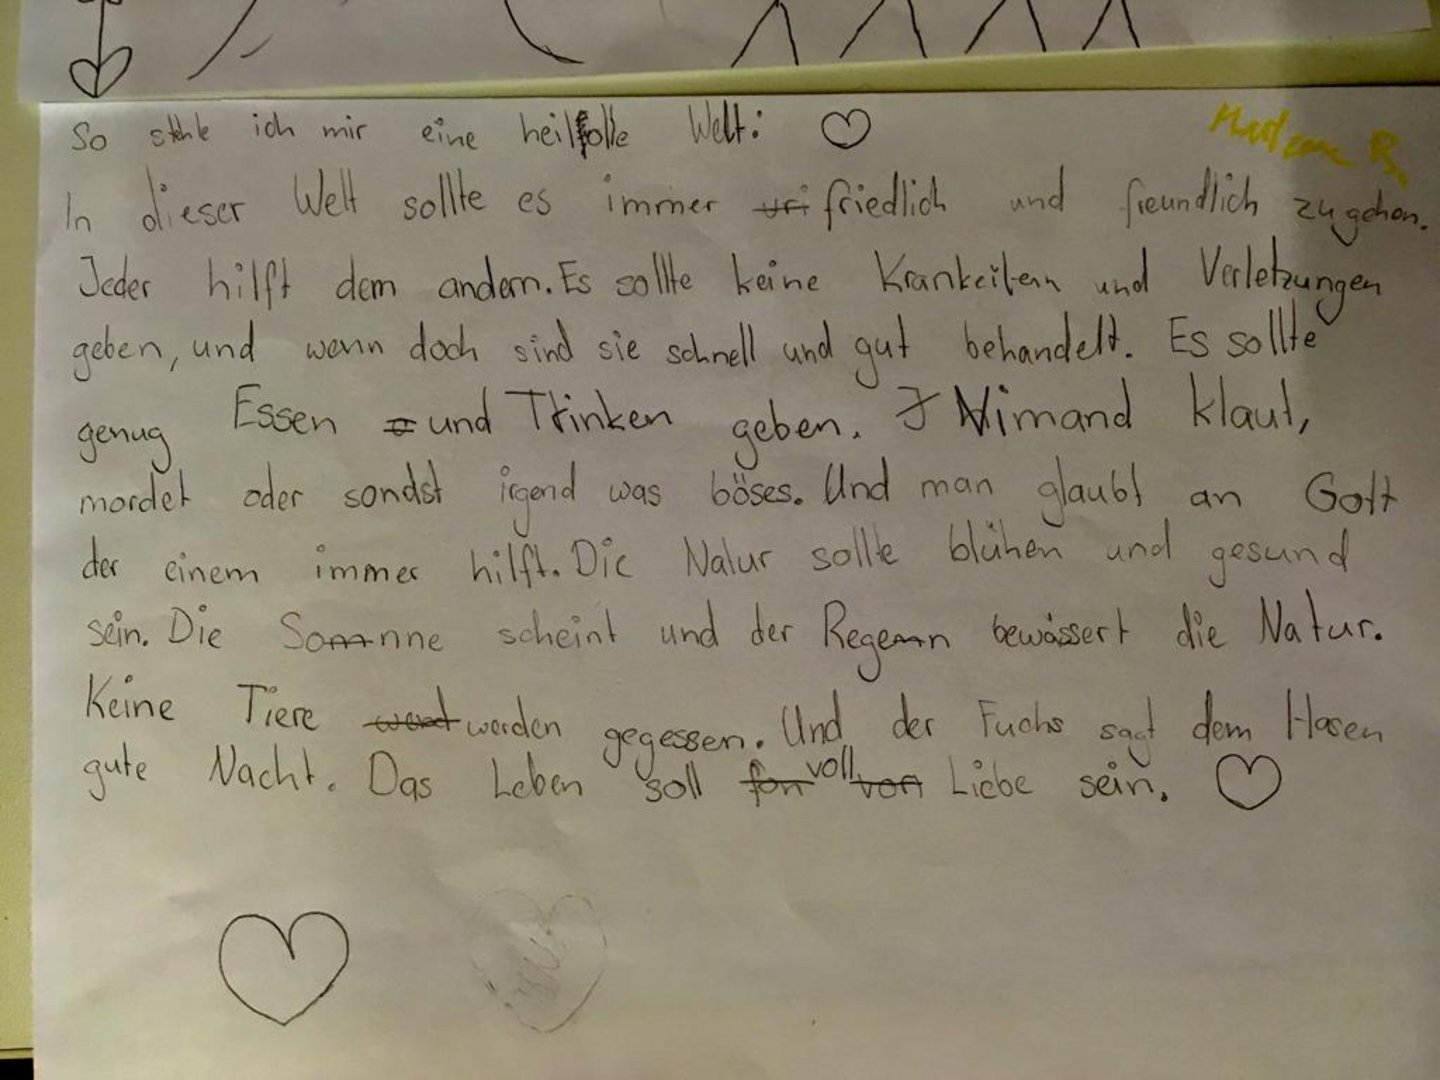 So stehle ich mir eine heilfolle Welt:
In dieser Welt sollte es immer friedlich und freundlich zugehen.
Jeder hilft dem andern. Es sollte keine Krankeitern und Verletzungen
geben, und wenn doch sind sie schnell und gut behandelt. Es sollte
genug Essen und Trinken geben. Nimand klaut,
mordet oder sondst irgend was böses. Und man glaubt an Gott
der einem immer hilft. Die Natur sollte blühen und gesund
sein. Die Sonne scheint und der Regen bewässert die Natur.
Keine Tiere werden gegessen. Und der Fuchs sagt dem Hasen
gute Nacht. Das Leben soll voll Liebe sein.